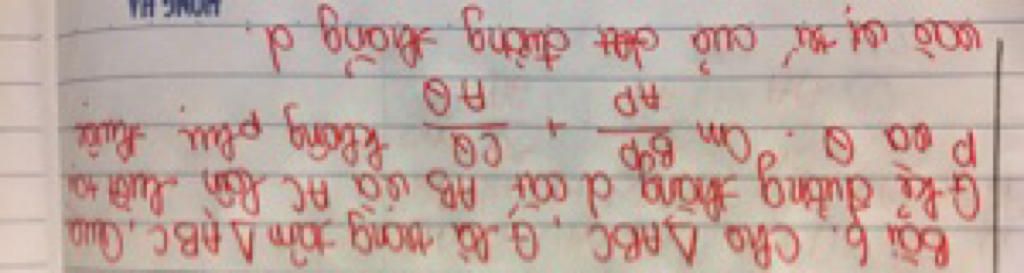 Bài 6. Cho ΔABC, G là trọng tâm ΔABC, Qua
G kẻ đường thẳng d cắt AB và AC lần lượt tại
P và Q. Cm BP/AP + CQ/AQ không phụ thuộc
vào vị trí của đt đường thẳng d.
HỒNG HÀ